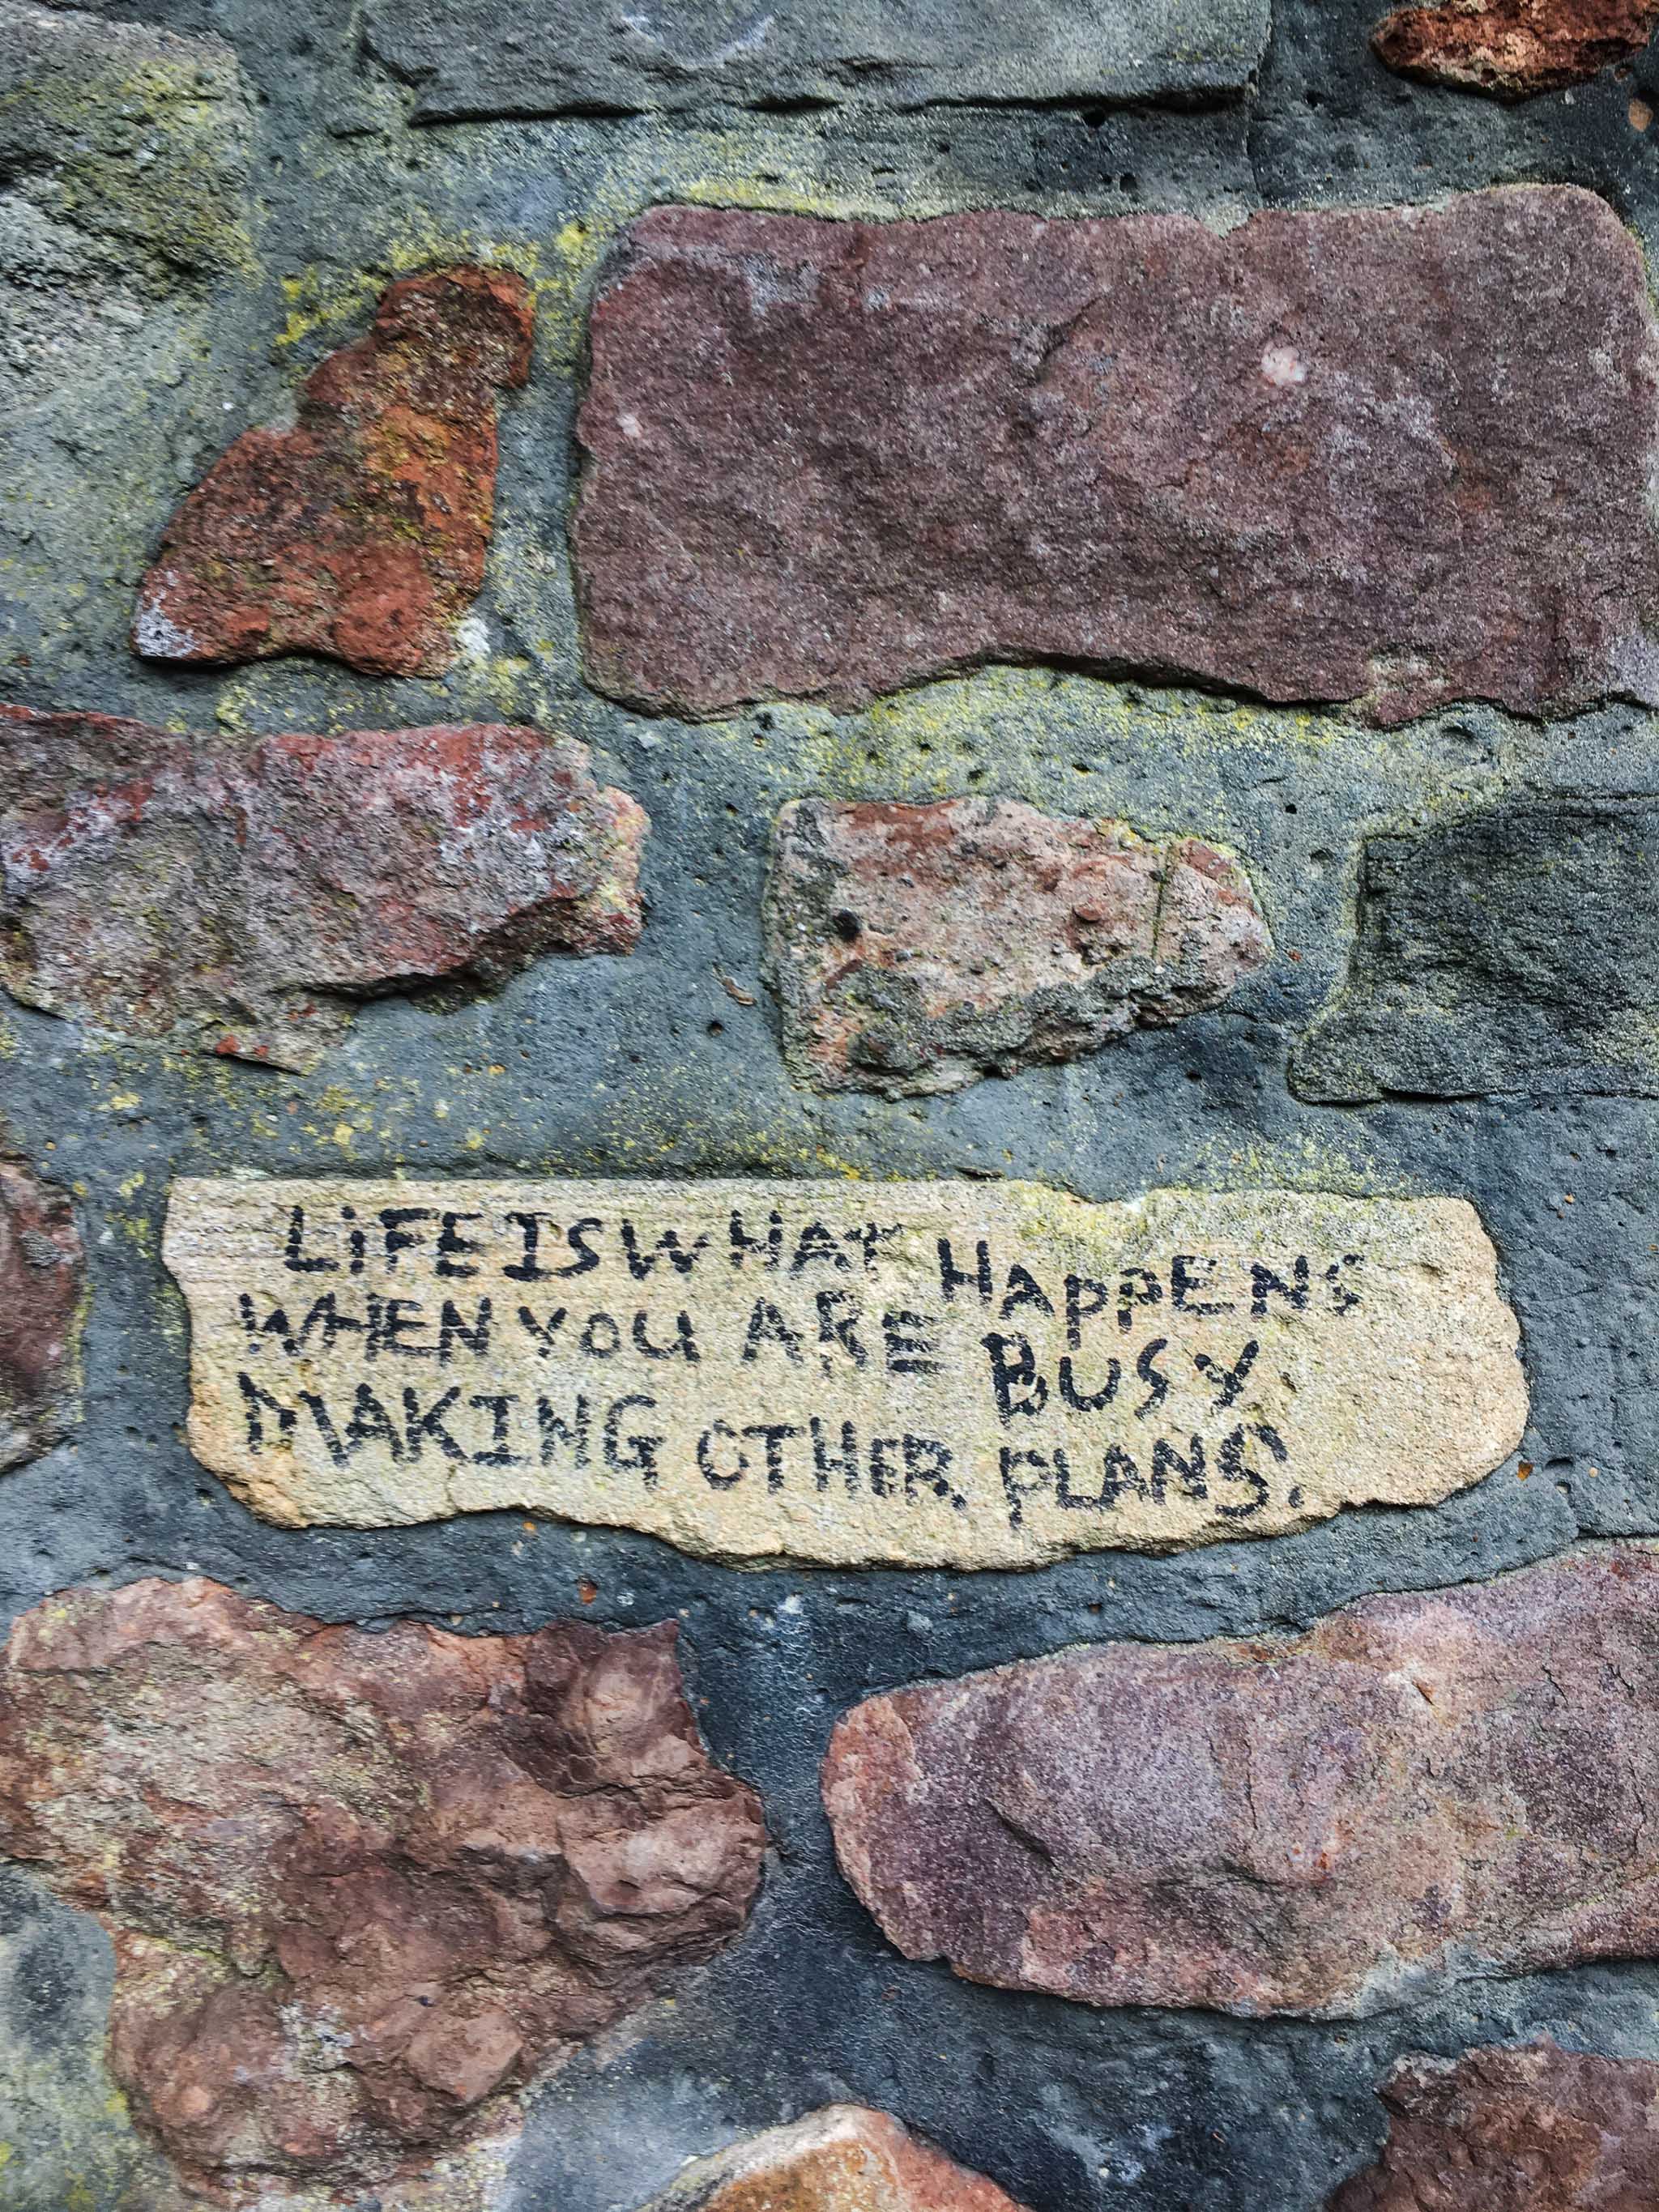 LiFE IS WHAT HAPPENS
WHEN YOU ARE BUSY
MAKING OTHER PLANS.